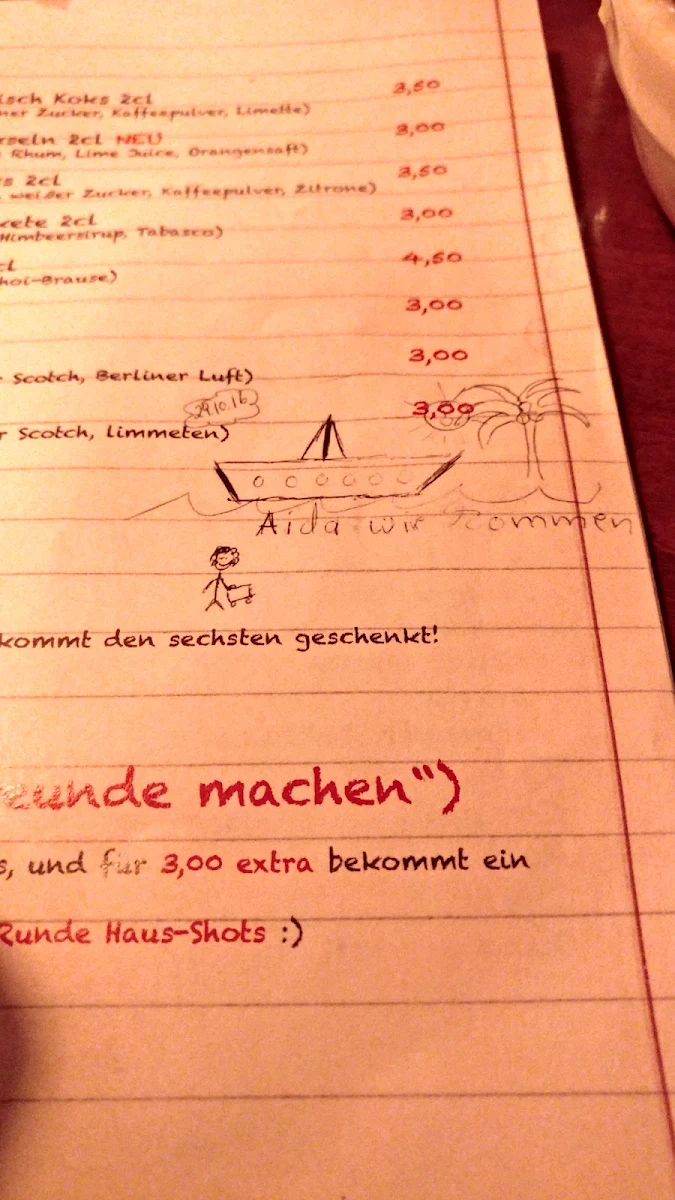 isch Koks 2cl 3,50
ner Zucker, Kaffeepulver, Limette)
rseln 2cl NEU 3,00
Rhum, Lime Juice, Orangensaft)
s 2cl 3,50
weißer Zucker, Kaffeepulver, Zitrone)
kete 2cl 3,00
Himbeersirup, Tabasco)
cl 4,50
hoi-Brause)
3,00
3,00
r Scotch, Berliner Luft)
29.10.16
3,00
r Scotch, limmeten)
Aida wir kommen
kommt den sechsten geschenkt!
eunde machen")
s, und für 3,00 extra bekommt ein
Runde Haus-Shots :)